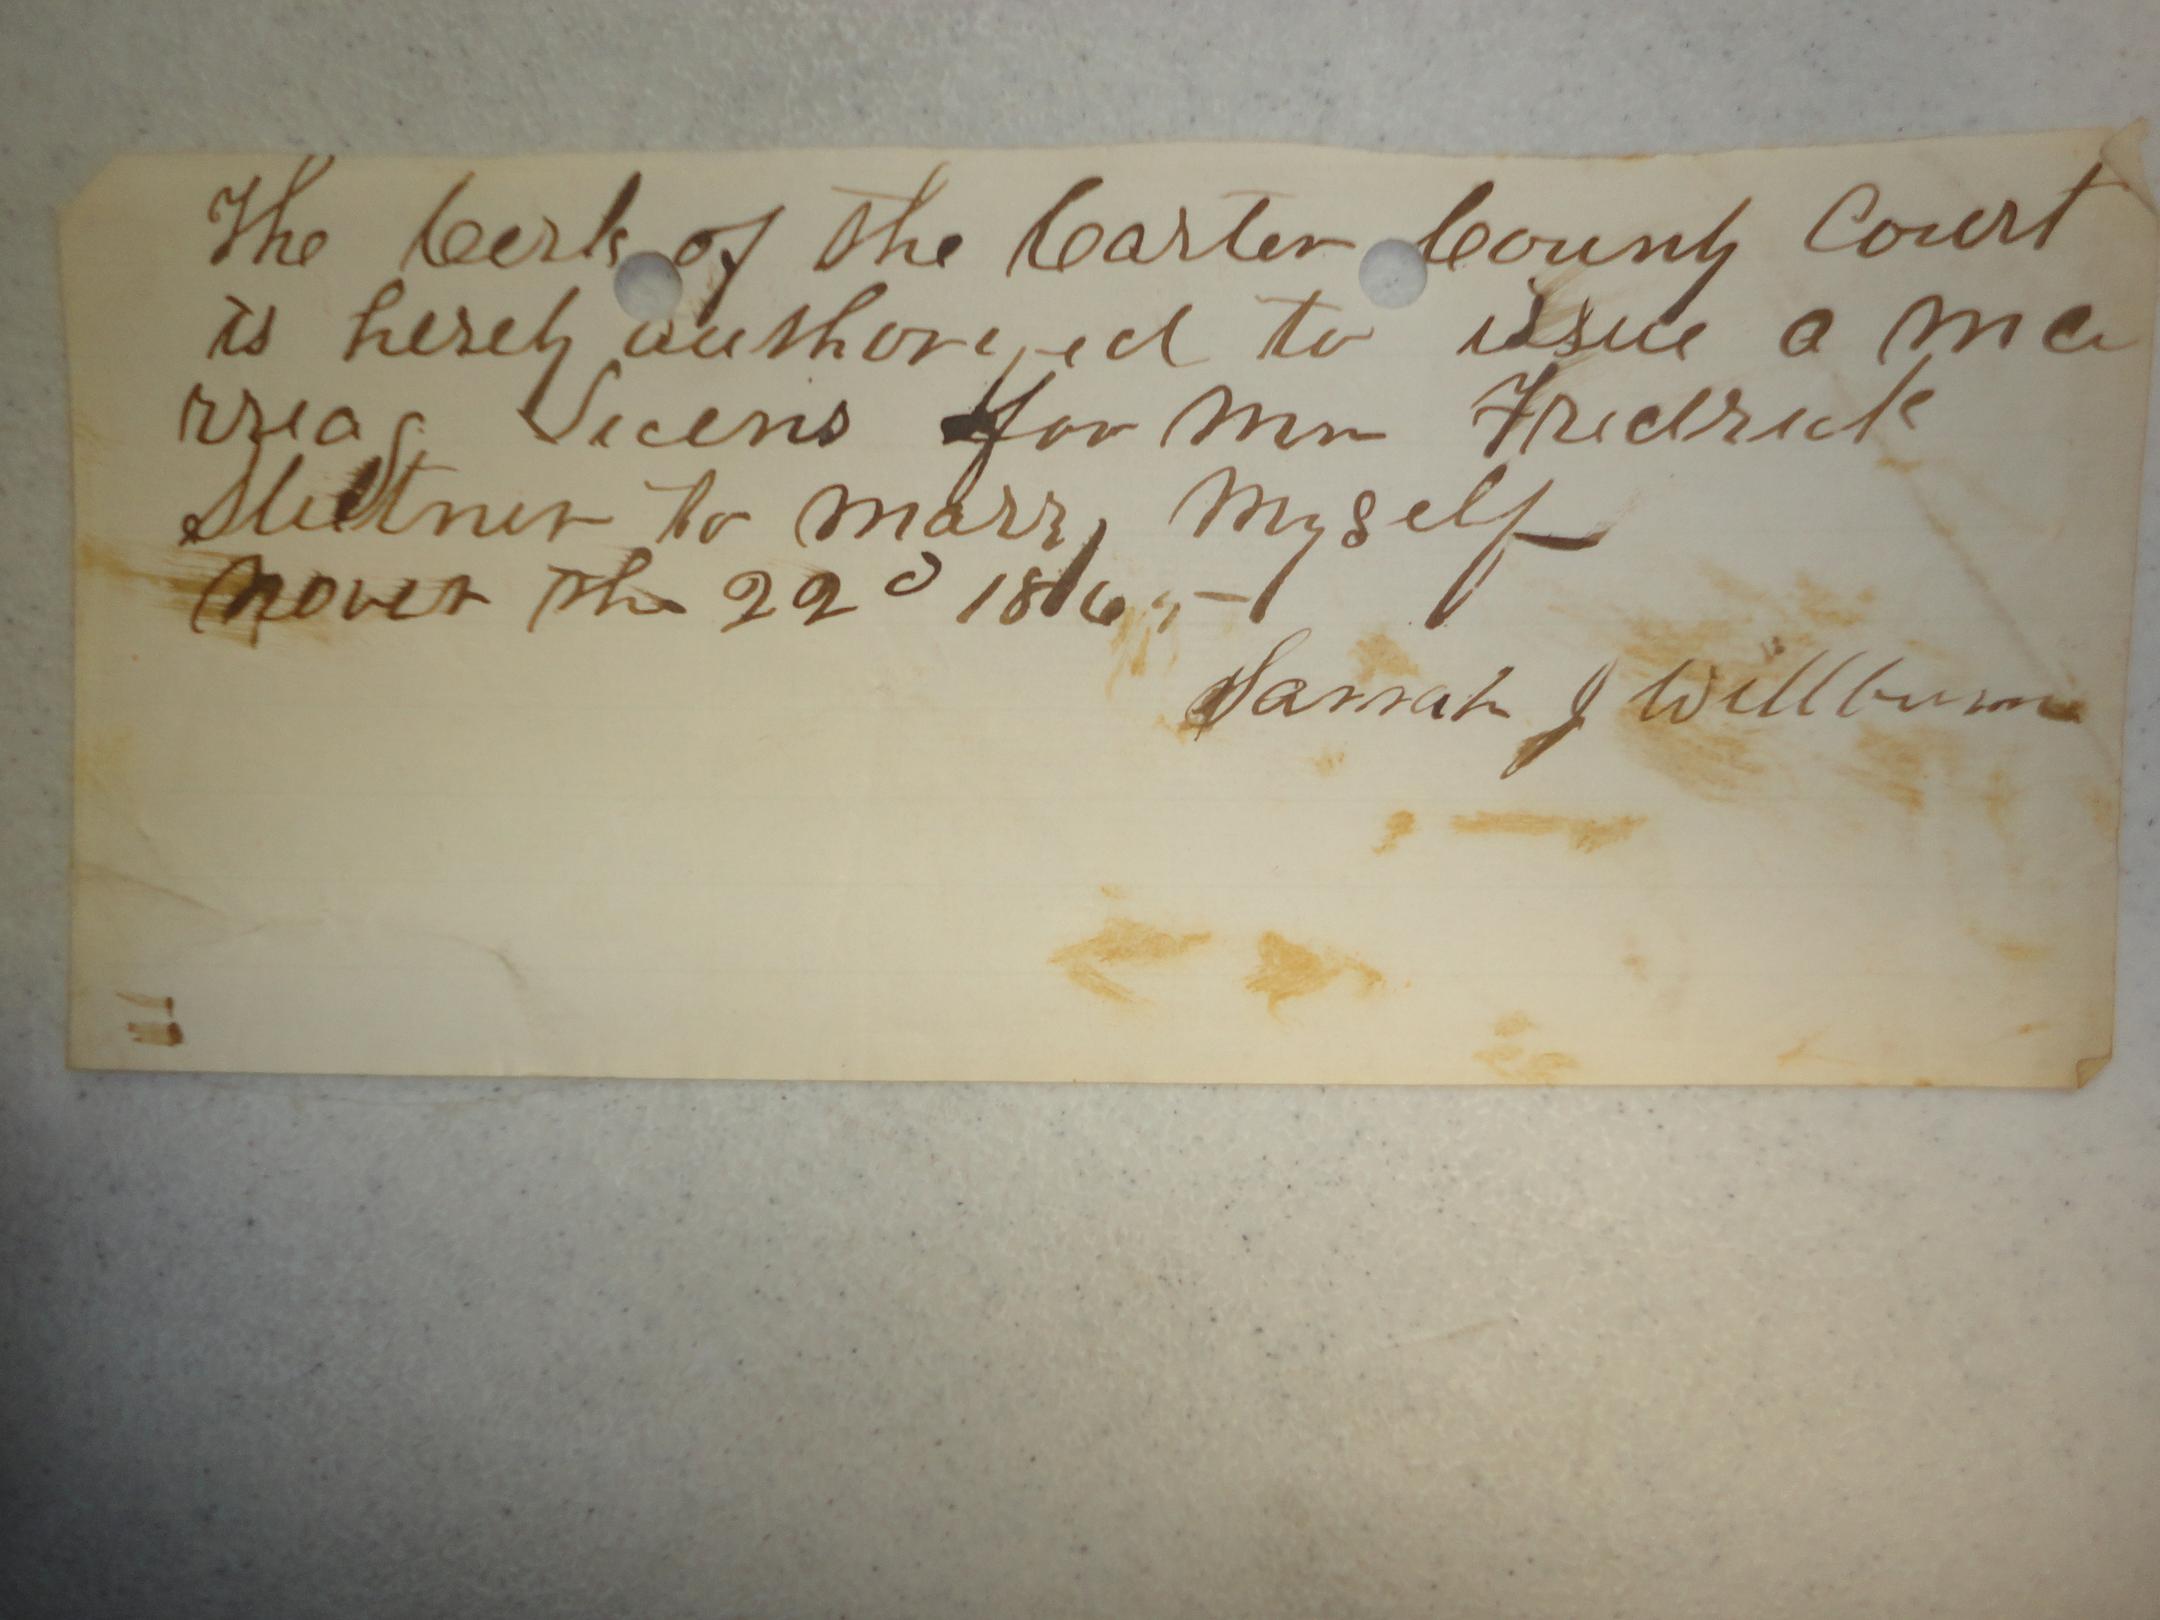 The Cerk of the Carter County Court
is herely authorized to issue a ma
rreag Licens for Mr Fredrick
to marry Myself
Novem the 22d
Sarrah J Willburn